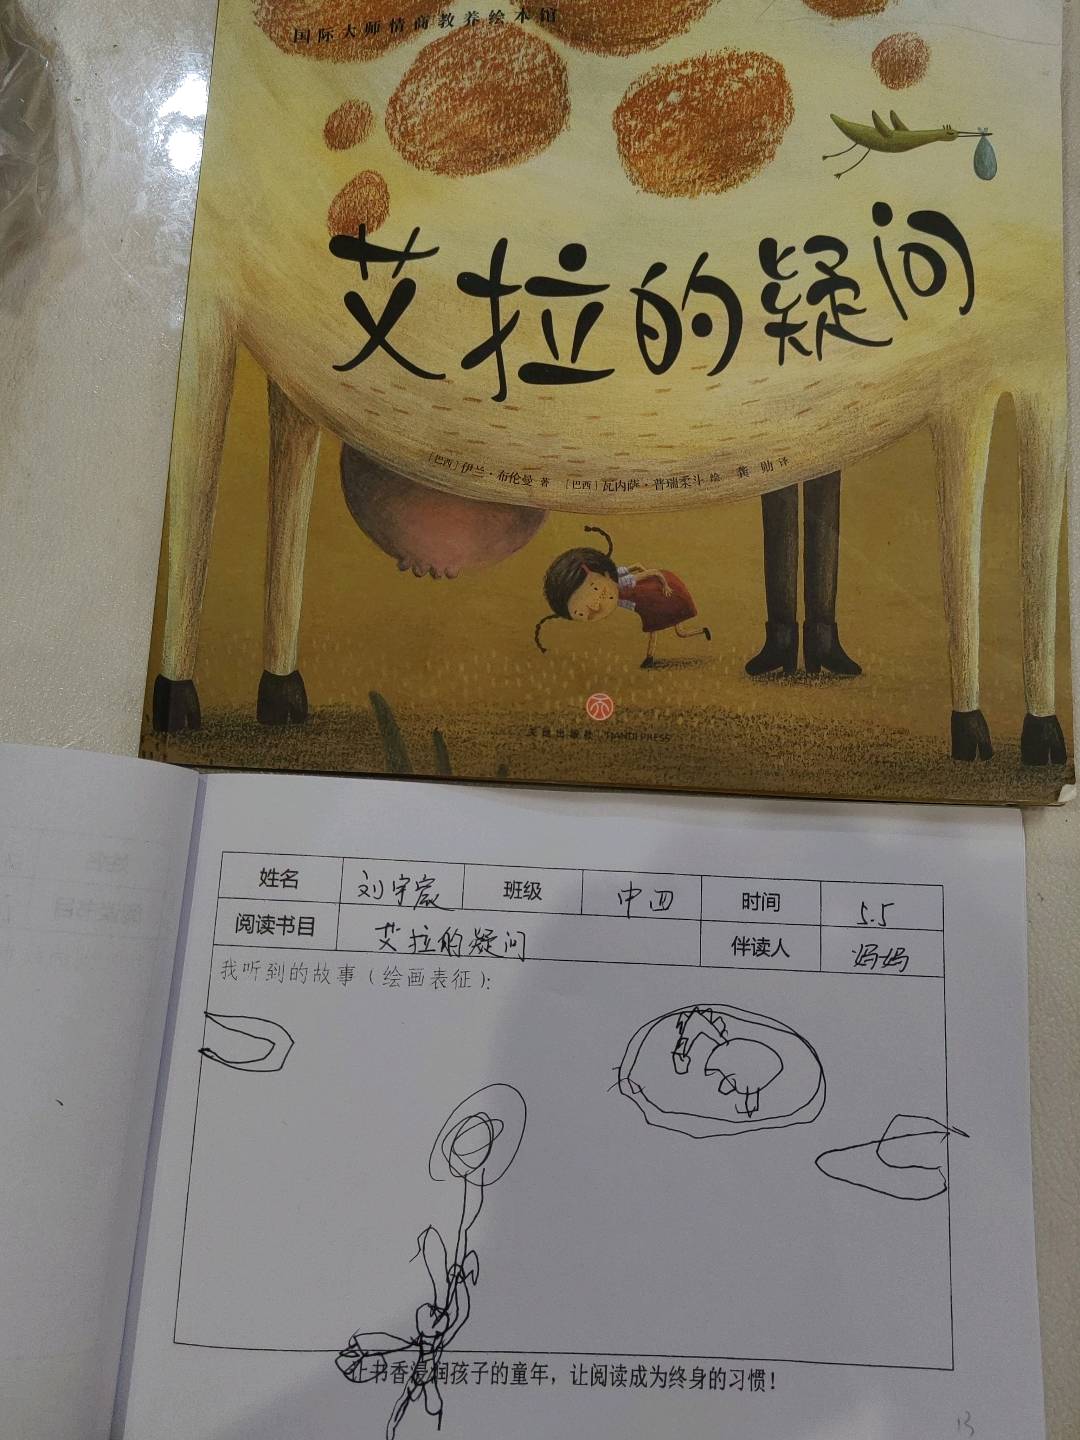 国际大师情商教养绘本馆
艾拉的疑问
[巴西]伊兰·布伦曼 著 [巴西]瓦内萨·普瑞柔斗 绘 龚勋 译
天地出版社 TIANDI PRESS
姓名 刘宇宸 班级 中四 时间 5.5
阅读书目 艾拉的疑问 伴读人 妈妈
我听到的故事(绘画表征):
让书香浸润孩子的童年,让阅读成为终身的习惯!
13